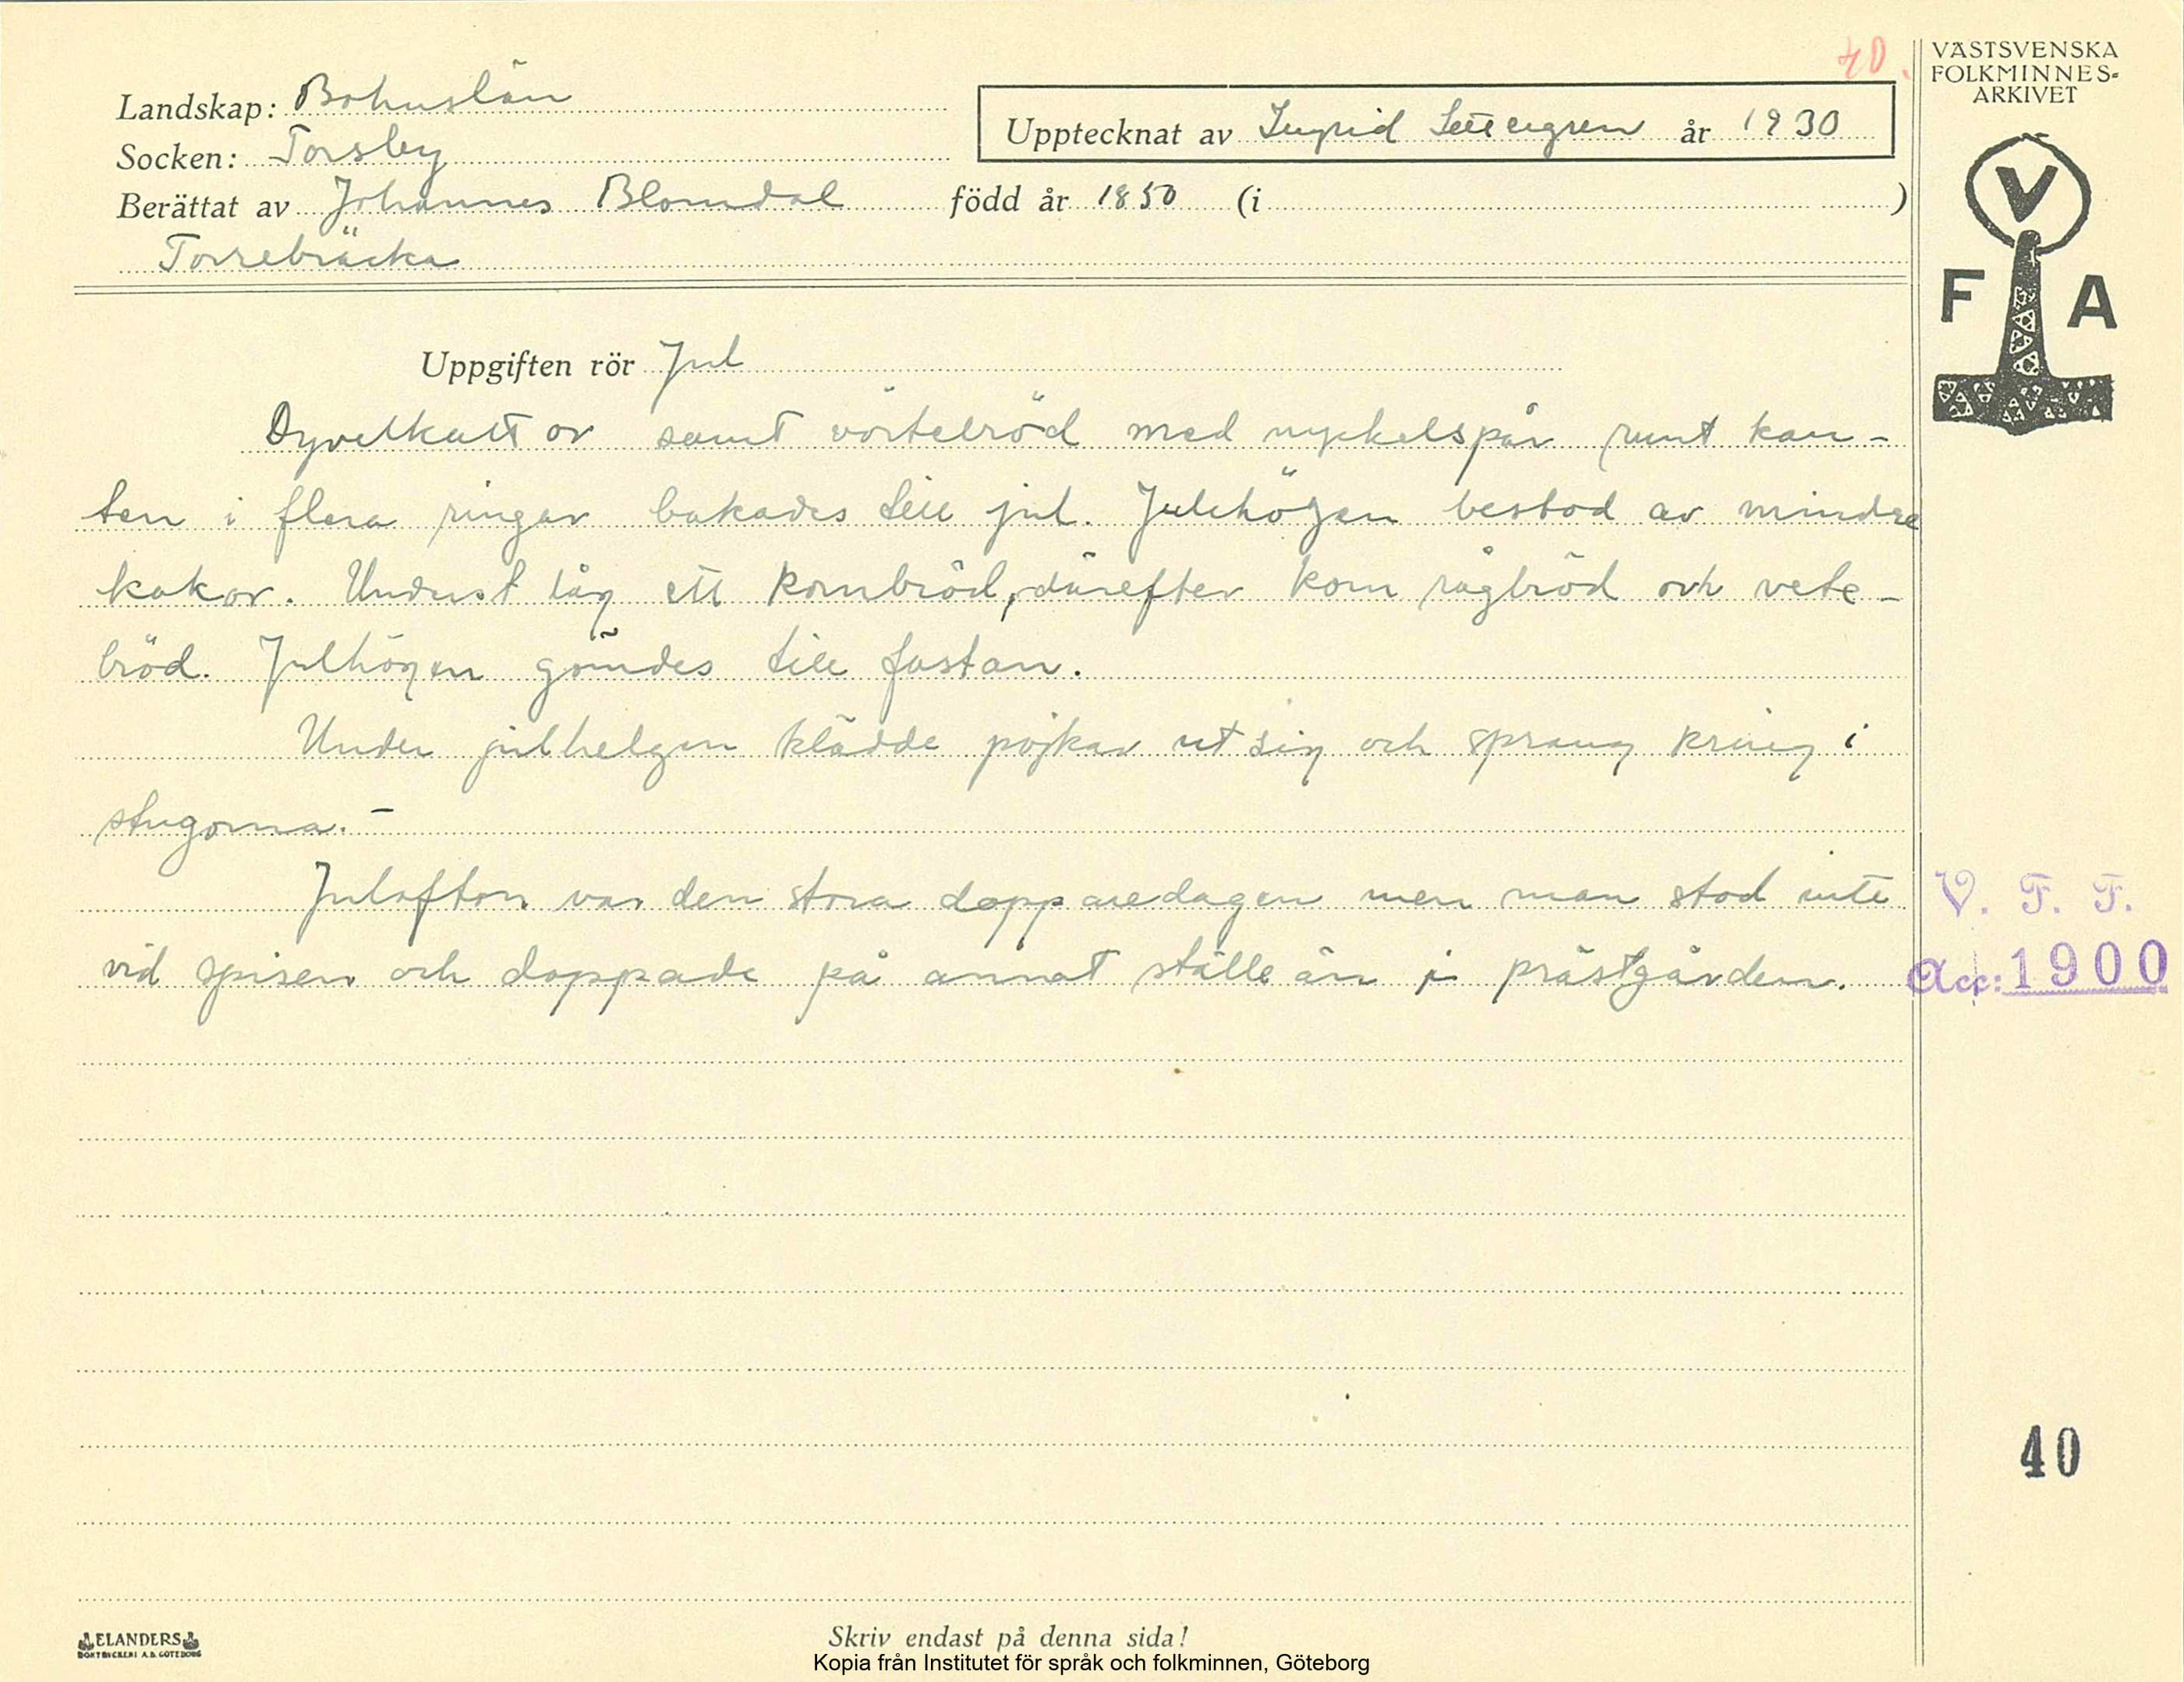 40.
VÄSTSVENSKA
FOLKMINNES-
ARKIVET
Landskap: Bohuslän
Upptecknat av Ingrid år 1930
Socken: Torsby
Berättat av Johannes Blomdal född år 1850 (i )
Torrebräcka
V
F A
Uppgiften rör Jul
Dyvelkattor samt vörtebröd med nyckelspår runt kan-
ten i flera ringar bakades till jul. Julehögen bestod av mindre
kakor. Underst låg ett kornbröd, därefter kom rågbröd och vete-
bröd. Julhögen gömdes till fastan.
Under julhelgen klädde pojkar ut sig och sprang kring i
stugorna. -
Julafton var den stora dopparedagen men man stod inte
vid spisen och doppade på annat ställe än i prästgården.
V. F. F.
Acc: 1900
40
ELANDERS
BOKTRYCKERI A.B. GÖTEBORG
Skriv endast på denna sida!
Kopia från Institutet för språk och folkminnen, Göteborg